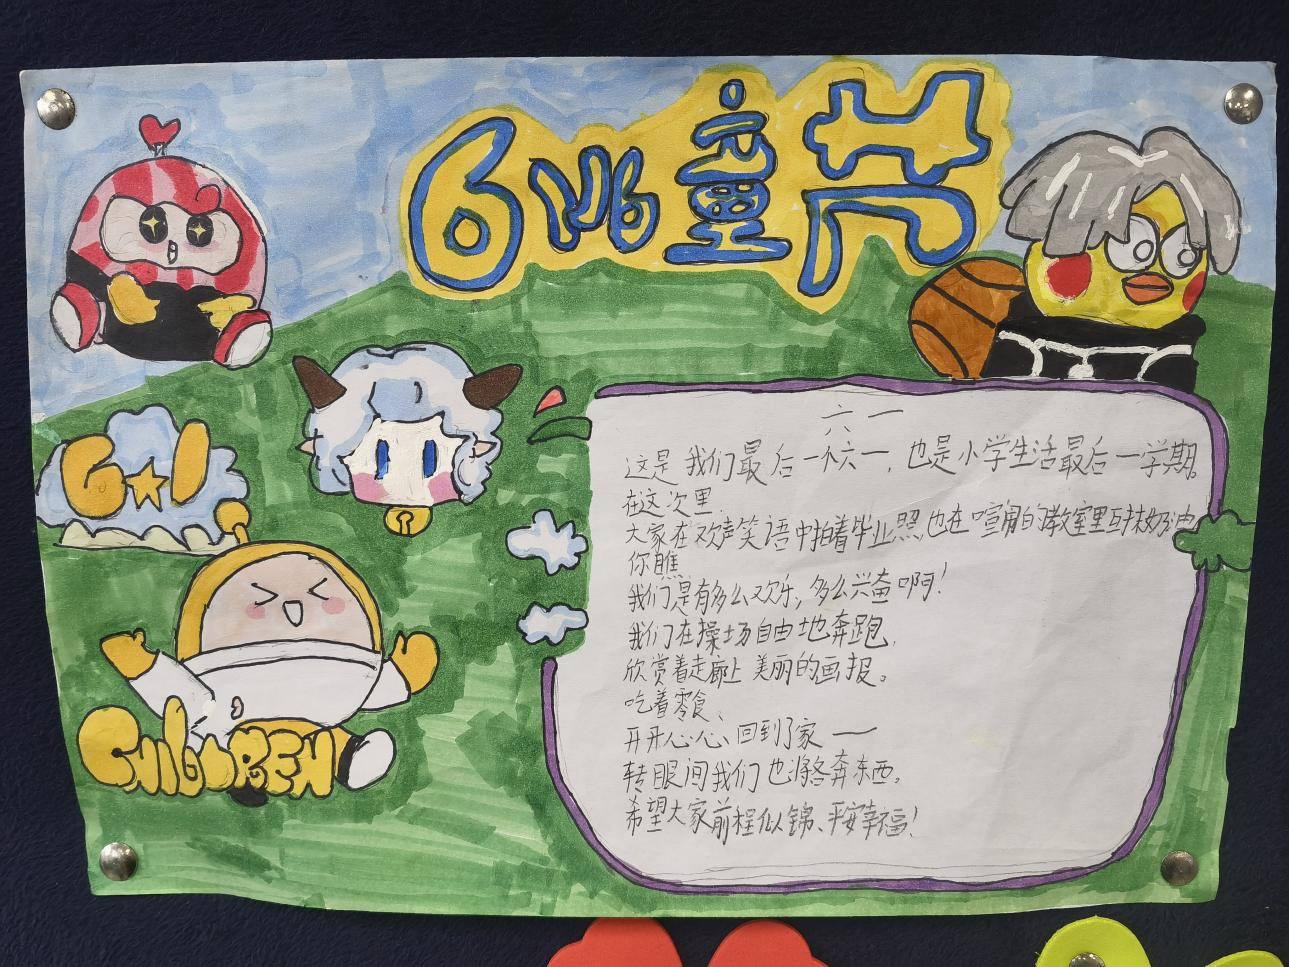 61儿童节
6★1
CHILDREN
六一
这是我们最后一个六一，也是小学生活最后一学期。
在这次里，
大家在欢声笑语中拍着毕业照也在喧闹的教室里互抹奶油
你瞧
我们是有多么欢乐，多么兴奋啊！
我们在操场自由地奔跑，
欣赏着走廊上美丽的画报。
吃着零食、
开开心心、回到了家——
转眼间我们也将各奔东西。
希望大家前程似锦、平安幸福！